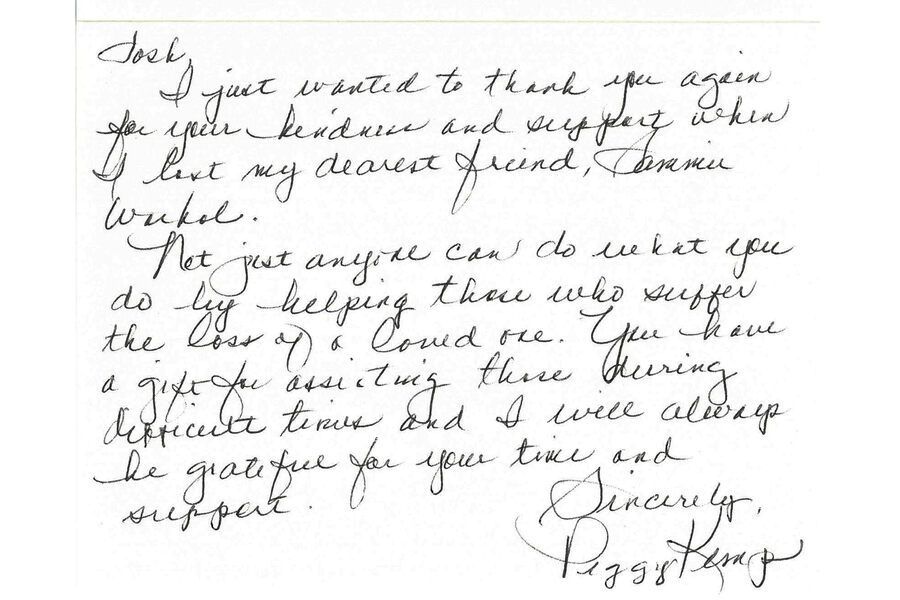 Josh,
I just wanted to thank you again
for your kindness and support when
I lost my dearest friend, Sammie
Warhol.
Not just anyone can do what you
do by helping those who suffer
the loss of a loved one. You have
a gift for assisting those during
difficult times and I will always
be grateful for your time and
support.
Sincerely,
Peggy Kemp